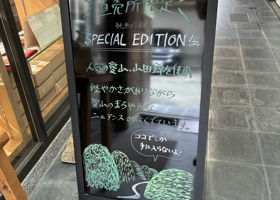 直売所限定
純米吟醸
SPECIAL EDITION
人気の愛山、山田錦を使用
軽やかさがありながら
愛山のまろやかな
ニュアンスがよくでています。
ココでしか
手に入らないよ。